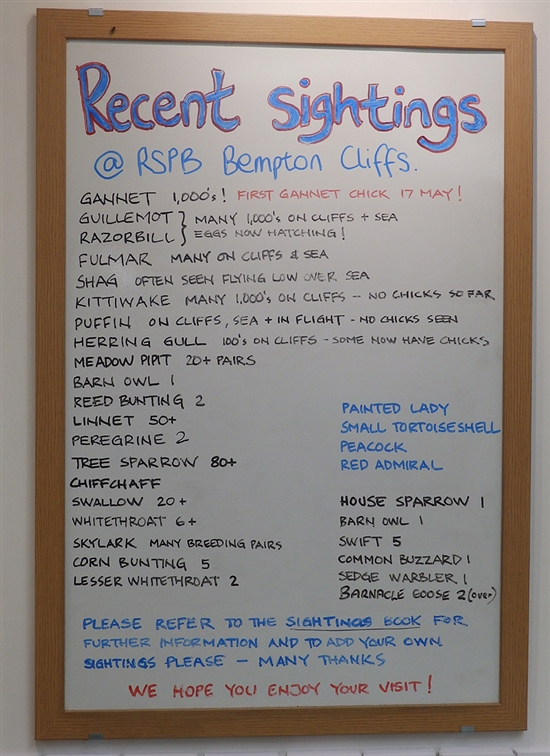 Recent Sightings
@ RSPB Bempton Cliffs.
GANNET 1,000's! FIRST GANNET CHICK 17 MAY!
GUILLEMOT } MANY 1,000's ON CLIFFS + SEA
RAZORBILL } EGGS NOW HATCHING!
FULMAR MANY ON CLIFFS & SEA
SHAG OFTEN SEEN FLYING LOW OVER SEA
KITTIWAKE MANY 1,000's ON CLIFFS - NO CHICKS SO FAR
PUFFIN ON CLIFFS, SEA + IN FLIGHT - NO CHICKS SEEN
HERRING GULL 100's ON CLIFFS - SOME NOW HAVE CHICKS
MEADOW PIPIT 20+ PAIRS
BARN OWL 1
REED BUNTING 2
LINNET 50+
PEREGRINE 2
TREE SPARROW 80+
CHIFFCHAFF
SWALLOW 20+
WHITETHROAT 6+
SKYLARK MANY BREEDING PAIRS
CORN BUNTING 5
LESSER WHITETHROAT 2
PAINTED LADY
SMALL TORTOISESHELL
PEACOCK
RED ADMIRAL
HOUSE SPARROW 1
BARN OWL 1
SWIFT 5
COMMON BUZZARD 1
SEDGE WARBLER 1
BARNACLE GOOSE 2 (over)
PLEASE REFER TO THE SIGHTINGS BOOK FOR
FURTHER INFORMATION AND TO ADD YOUR OWN
SIGHTINGS PLEASE - MANY THANKS
WE HOPE YOU ENJOY YOUR VISIT!